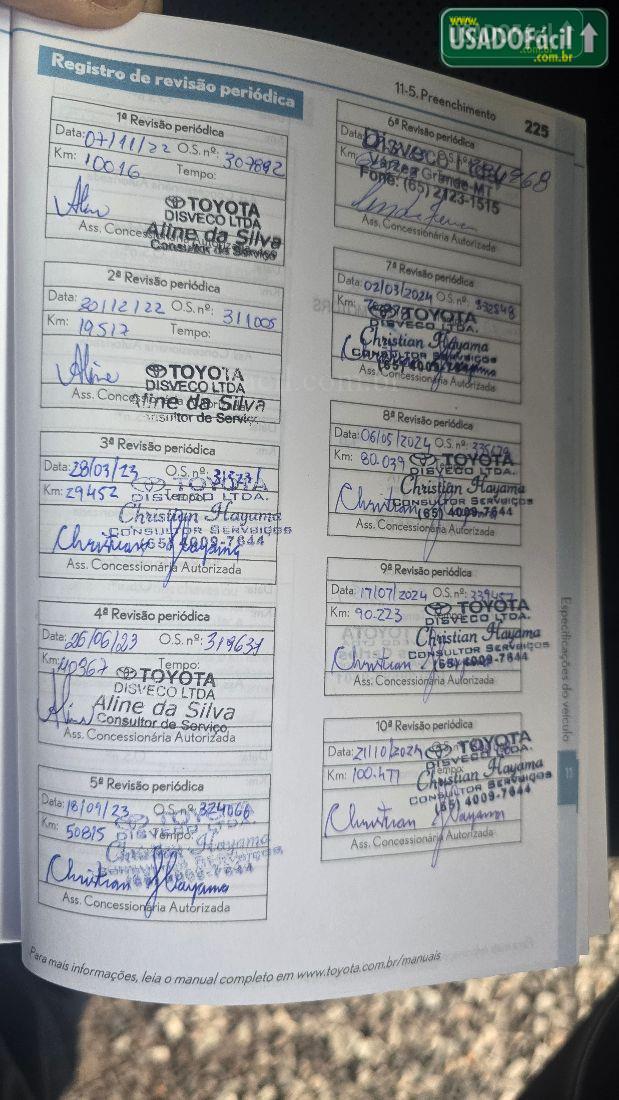 www.
USADOFácil
.com.br
11-5. Preenchimento
225
Registro de revisão periódica
1ª Revisão periódica
Data: 07/11/22 O.S. nº: 307892
Km: 10016 Tempo:
Aline
TOYOTA
DISVECO LTDA
Aline da Silva
Consultor de Serviço
Ass. Concessionária Autorizada
2ª Revisão periódica
Data: 20/12/22 O.S. nº: 311005
Km: 19517 Tempo:
Aline
TOYOTA
DISVECO LTDA
Aline da Silva
Consultor de Serviço
3ª Revisão periódica
Data: 28/03/23 O.S. nº:
Km: 29452 Tempo:
TOYOTA
DISVECO LTDA.
Christian Hayama
CONSULTOR SERVEIÇOS
(65) 4009-7644
Christian Hayama
Ass. Concessionária Autorizada
4ª Revisão periódica
Data: 26/06/23 O.S. nº: 319631
Km: 40367 Tempo:
Aline
TOYOTA
DISVECO LTDA
Aline da Silva
Consultor de Serviço
Ass. Concessionária Autorizada
5ª Revisão periódica
Data: 18/09/23 O.S. nº: 324066
Km: 50815 Tempo:
TOYOTA
DISVECO LTDA.
Christian Hayama
CONSULTOR SERVEIÇOS
(65) 4009-7644
Christian Hayama
Ass. Concessionária Autorizada
6ª Revisão periódica
Data:
Km:
Várzea Grande-MT
Fone: (65) 2123-1515
Ass. Concessionária Autorizada
7ª Revisão periódica
Data: 02/03/2024 O.S. nº: 332548
Km:
TOYOTA
DISVECO LTDA.
Christian Hayama
CONSULTOR SERVEIÇOS
(65) 4009-7644
Ass. Concessionária Autorizada
8ª Revisão periódica
Data: 06/05/2024 O.S. nº:
Km: 80.039
TOYOTA
DISVECO LTDA.
Christian Hayama
CONSULTOR SERVEIÇOS
(65) 4009-7644
Christian
Ass. Concessionária Autorizada
9ª Revisão periódica
Data: 17/07/2024 O.S. nº: 239457
Km: 90.223
TOYOTA
DISVECO LTDA.
Christian Hayama
CONSULTOR SERVEIÇOS
(65) 4009-7644
Christian
Ass. Concessionária Autorizada
10ª Revisão periódica
Data: 21/10/2024
Km: 100.477 Tempo:
TOYOTA
DISVECO LTDA.
Christian Hayama
CONSULTOR SERVEIÇOS
(65) 4009-7644
Christian Hayama
Ass. Concessionária Autorizada
Especificações do veículo
11
Para mais informações, leia o manual completo em www.toyota.com.br/manuais